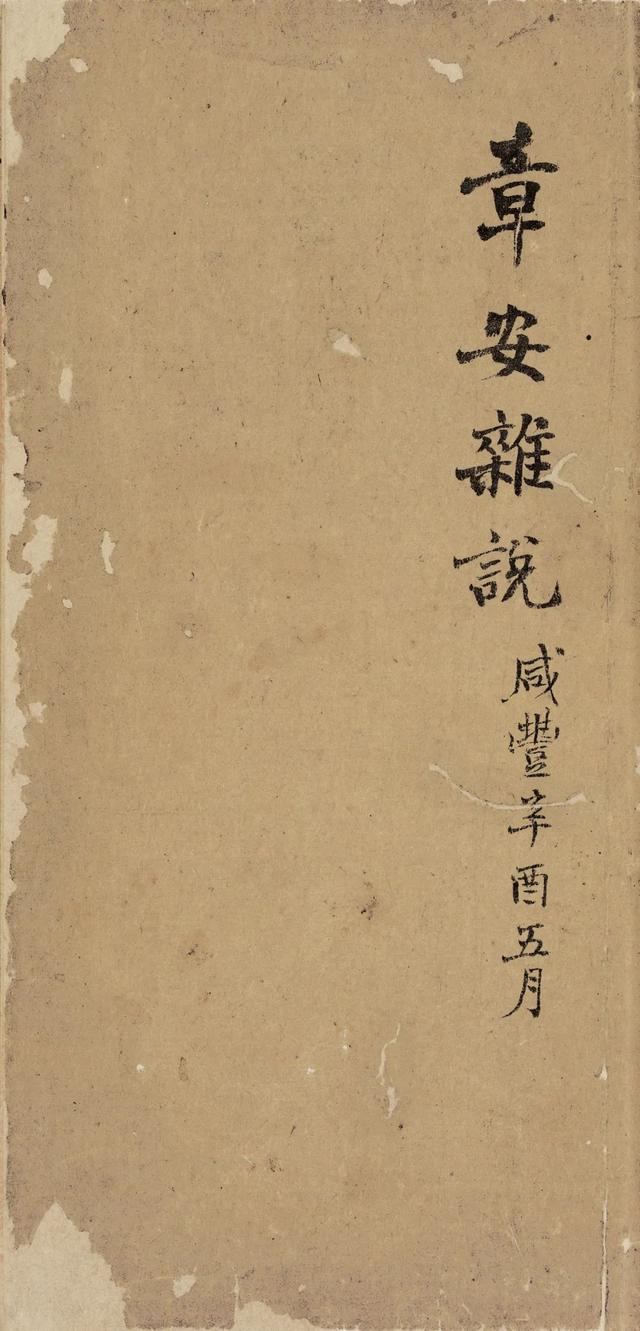 章安雜說
咸豐辛酉五月